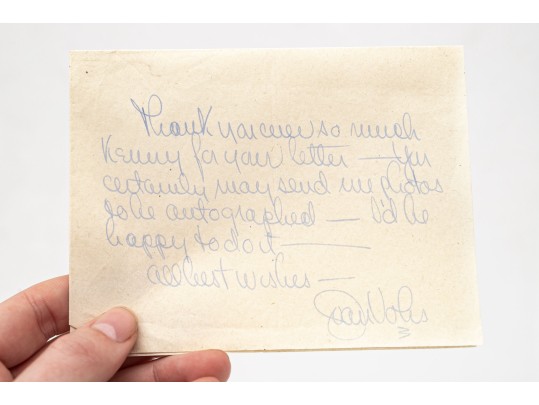 Thank you ever so much
Kenny for your letter — You
certainly may send me photos
to be autographed — I'd be
happy to do it —
All best wishes —
Joan Vohs